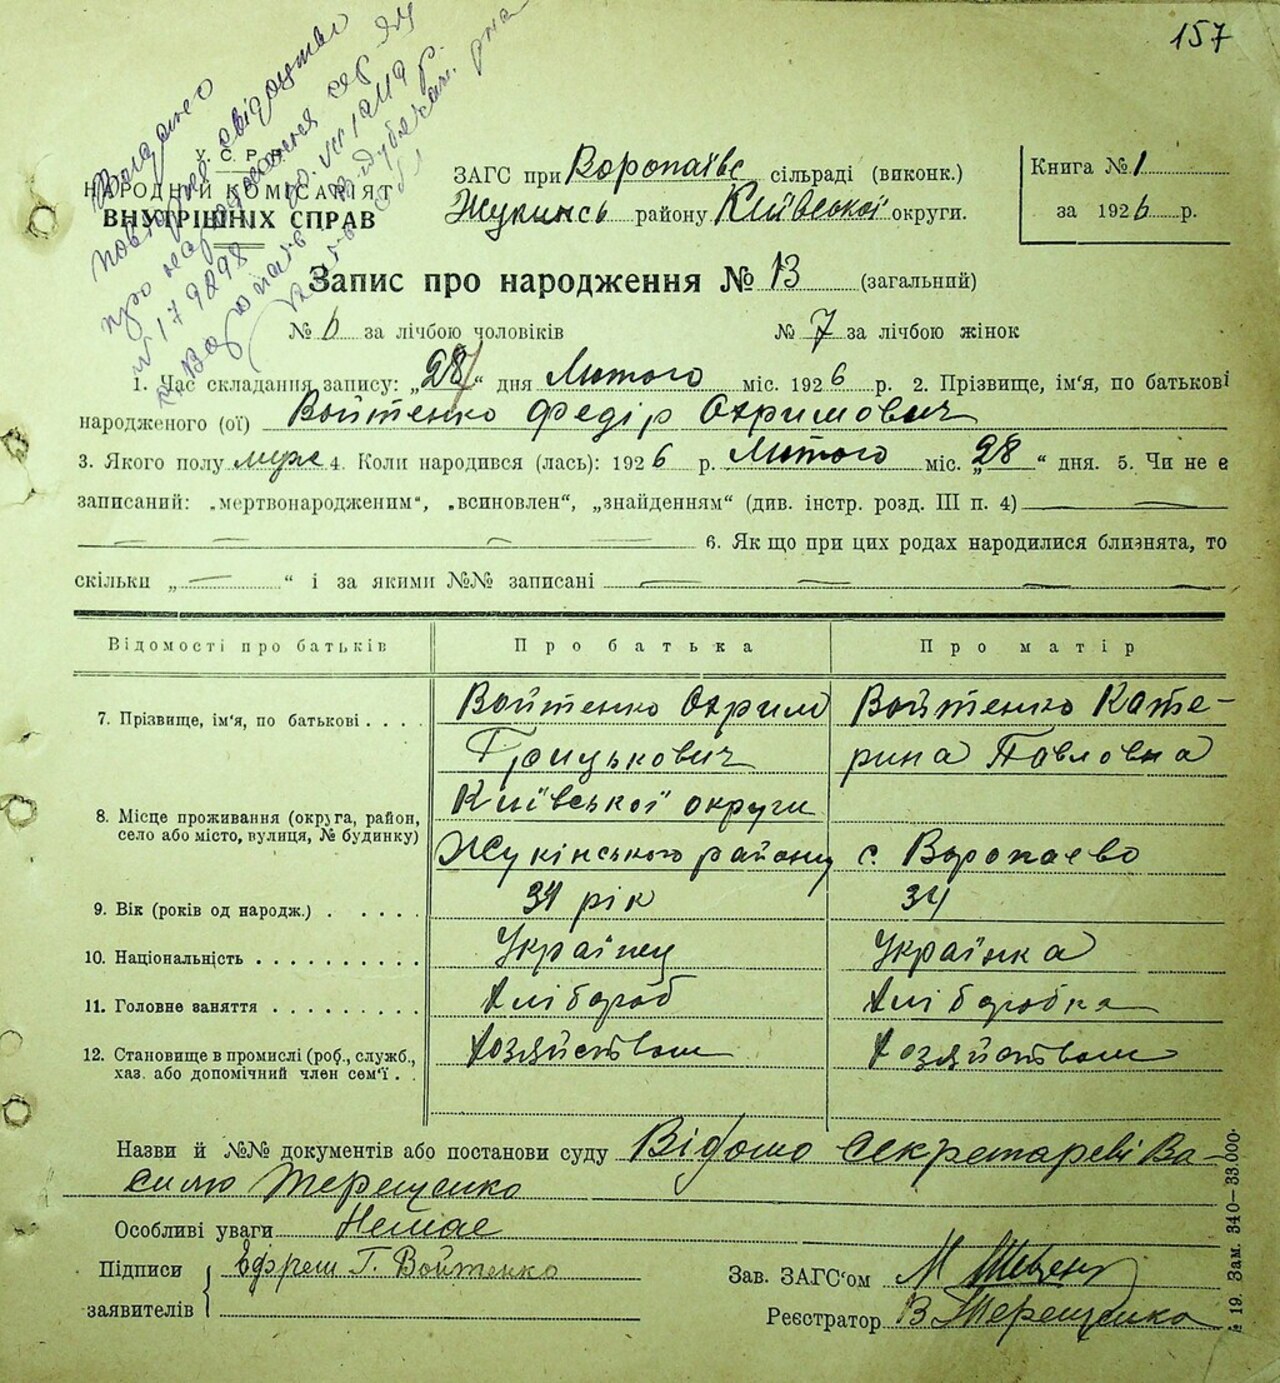 157
Видано
повторне свідоцтво
про народження
У. С. Р. Р.
НАРОДНІЙ КОМІСАРІЯТ
ВНУТРІШНІХ СПРАВ
ЗАГС при Воропаївс сільраді (виконк.)
Жукинсь району Київської округи.
Книга № 1
за 1926 р.
Запис про народження № 13 (загальний)
№ 6 за лічбою чоловіків № 7 за лічбою жінок
1. Час складання запису: „28“ дня Лютого міс. 1926 р. 2. Прізвище, ім'я, по батькові
народженого (ої) Войтенко Федір Охримович
3. Якого полу муж 4. Коли народився (лась): 1926 р. Лютого міс. „28“ дня. 5. Чи не є
записаний: „мертвонародженим“, „всиновлен“, „знайденням“ (див. інстр. розд. III п. 4)
6. Як що при цих родах народилися близнята, то
скільки „ “ і за якими №№ записані
Відомості про батьків Про батька Про матір
7. Прізвище, ім'я, по батькові . . . . Войтенко Охрим Войтенко Кате-
Грицькович рина Павловна
8. Місце проживання (округа, район, село або місто, вулиця, № будинку) Київської округи
Жукінського району с. Воропаєво
9. Вік (років од народж.) . . . . . 34 рік 34
10. Національність . . . . . . . . . . Українц Українка
11. Головне заняття . . . . . . . . . Хлібороб Хліборобка
12. Становище в промислі (роб., служб., хаз. або допомічний член сем'ї . . Хозяйством Хозяйством
Назви й №№ документів або постанови суду Відомо Секретареві Ва-
силю Терещенко
Особливі уваги Немає
Підписи заявителів Ефрем Г. Войтенко
Зав. ЗАГС'ом М
Реєстратор В Терещенко
№ 19. Зам. 340—33.000.